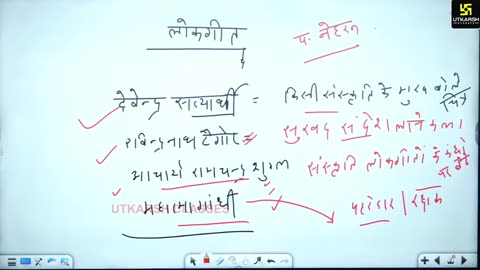 लोकगीत
पं. नेहरू
UTKARSH CLASSES
देवेन्द्र सत्यार्थी = किसी संस्कृति के मुख बोलते चित्र
रविन्द्रनाथ टैगोर = सुखद संदेश लाने कला
आचार्य रामचन्द्र शुक्ल संस्कृति लोकगीतों के कंधों पर
महात्मा गांधी पहरेदार |
UTKARSH CLASSES